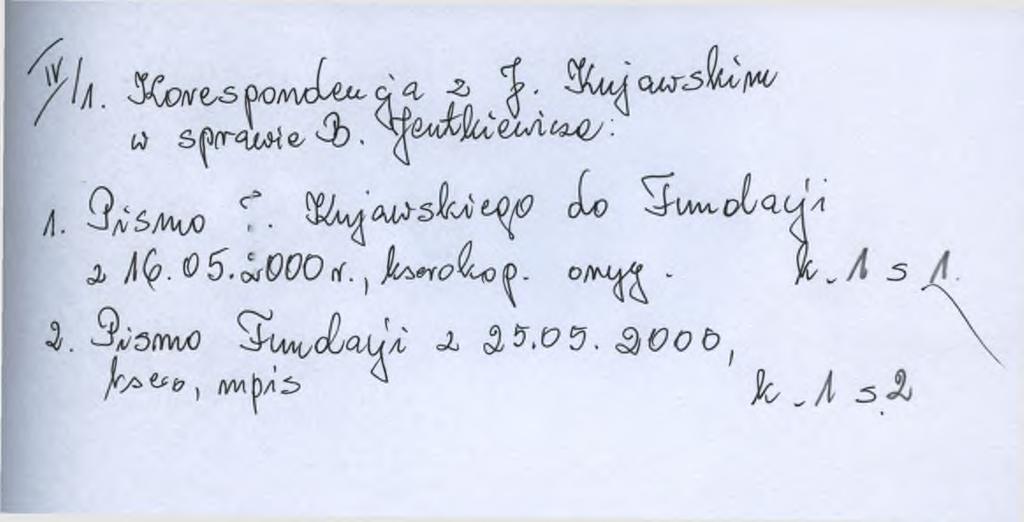 IV/1. Korespondencja z J. Kujawskim
w sprawie B. Jentkiewicza:
1. Pismo J. Kujawskiego do Fundacji
z 16.05.2000 r., kserokop. oryg. k. 1 s 1.
2. Pismo Fundacji z 25.05.2000,
ksero, mpis k. 1 s. 2